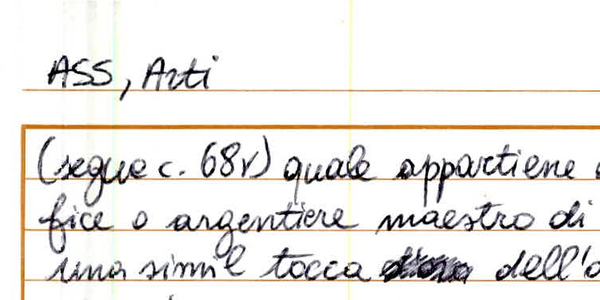 ASS, Arti
(segue c. 68v) quale appartiene
fice o argentiere maestro di
una simil tocca dell'o